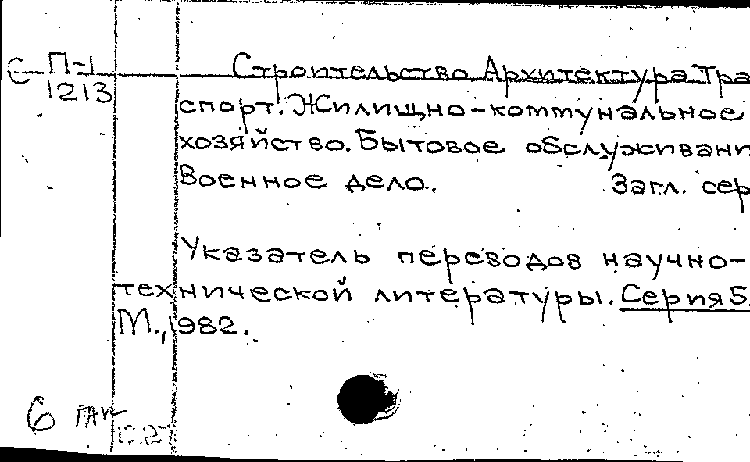 С П-1
1213
Строительство. Архитектура. Тра
спорт. Жилищно-коммунальное
хозяйство. Бытовое обслуживани
Военное дело. Загл. сер
Указатель переводов научно-
технической литературы. Серия 5.
М., 1982.
6